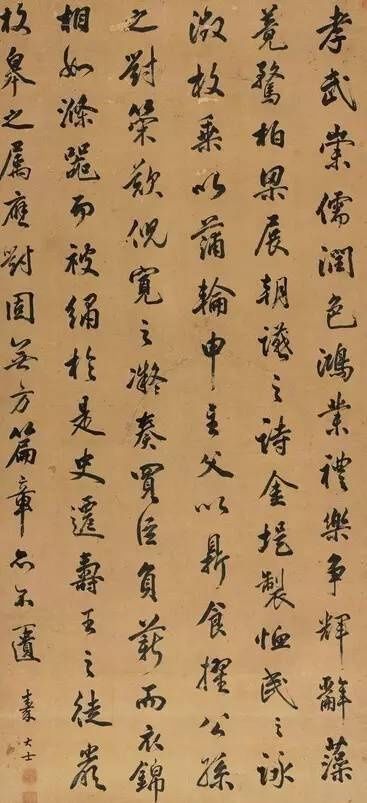 孝武崇儒潤色鴻業禮樂争輝辭藻
竟騖柏梁展朝讌之詩金堤製恤民之詠
徵枚乘以蒲輪申主父以鼎食擢公孫
之對策歎倪寬之凝奏買臣負薪而衣錦
相如滌器而被繡於是史遷壽王之徒嚴
枚皋之属應對固無方篇章亦不匱
秦大士